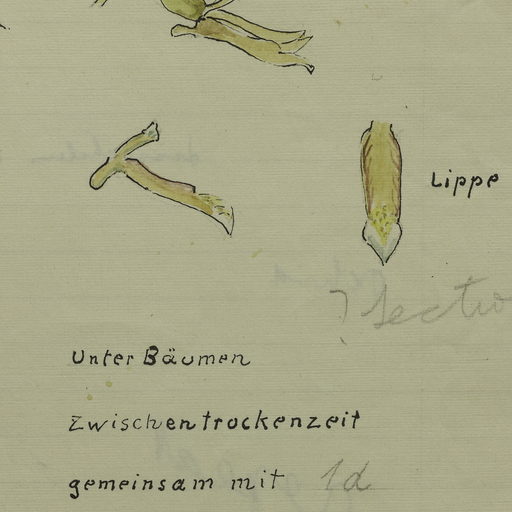 Lippe
? sectio
Unter Bäumen
Zwischentrockenzeit
gemeinsam mit 1d